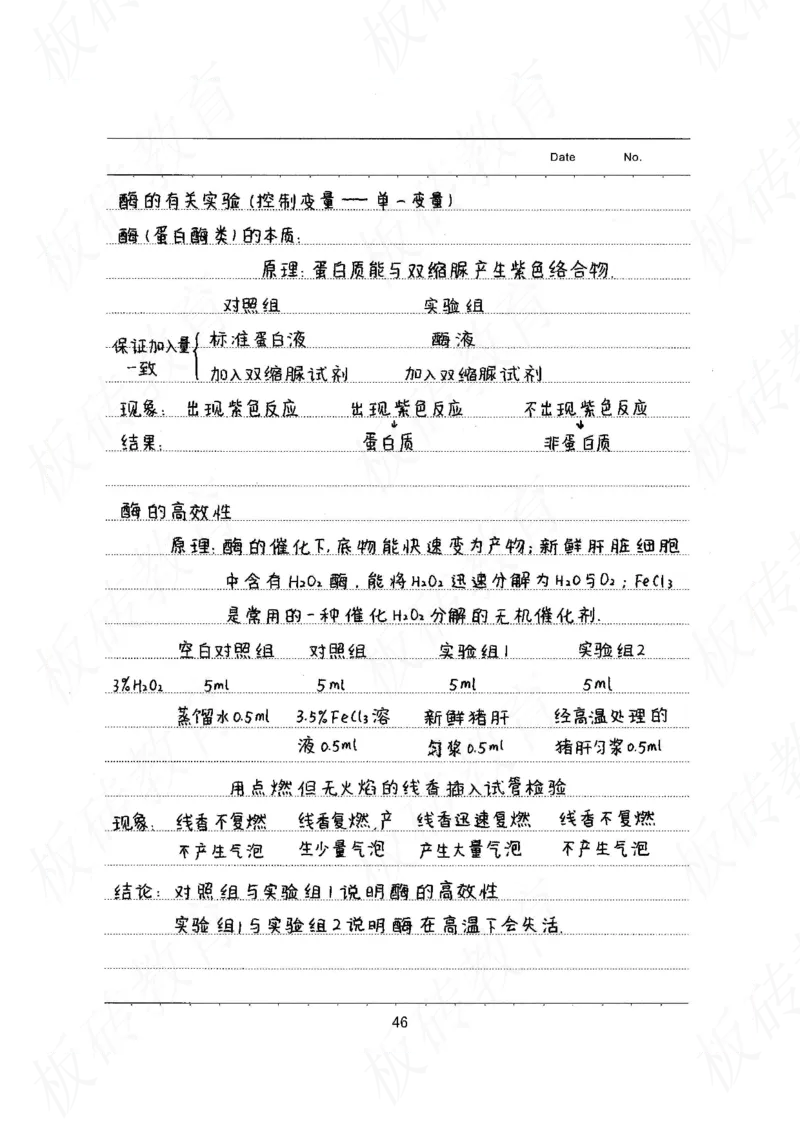 Date No.
酶的有关实验(控制变量——单一变量)
酶(蛋白酶类)的本质:
原理:蛋白质能与双缩脲产生紫色络合物.
对照组 实验组
保证加入量一致 { 标准蛋白液 酶液
加入双缩脲试剂 加入双缩脲试剂
现象: 出现紫色反应 出现紫色反应 不出现紫色反应
↓ ↓
结果: 蛋白质 非蛋白质
酶的高效性
原理:酶的催化下,底物能快速变为产物;新鲜肝脏细胞
中含有H₂O₂酶,能将H₂O₂迅速分解为H₂O与O₂;FeCl₃
是常用的一种催化H₂O₂分解的无机催化剂.
空白对照组 对照组 实验组1 实验组2
3%H₂O₂ 5ml 5ml 5ml 5ml
蒸馏水0.5ml 3.5%FeCl₃溶 新鲜猪肝 经高温处理的
液0.5ml 匀浆0.5ml 猪肝匀浆0.5ml
用点燃但无火焰的线香插入试管检验
现象: 线香不复燃 线香复燃,产 线香迅速复燃 线香不复燃
不产生气泡 生少量气泡 产生大量气泡 不产生气泡
结论: 对照组与实验组1说明酶的高效性
实验组1与实验组2说明酶在高温下会失活.
46
板砖教育